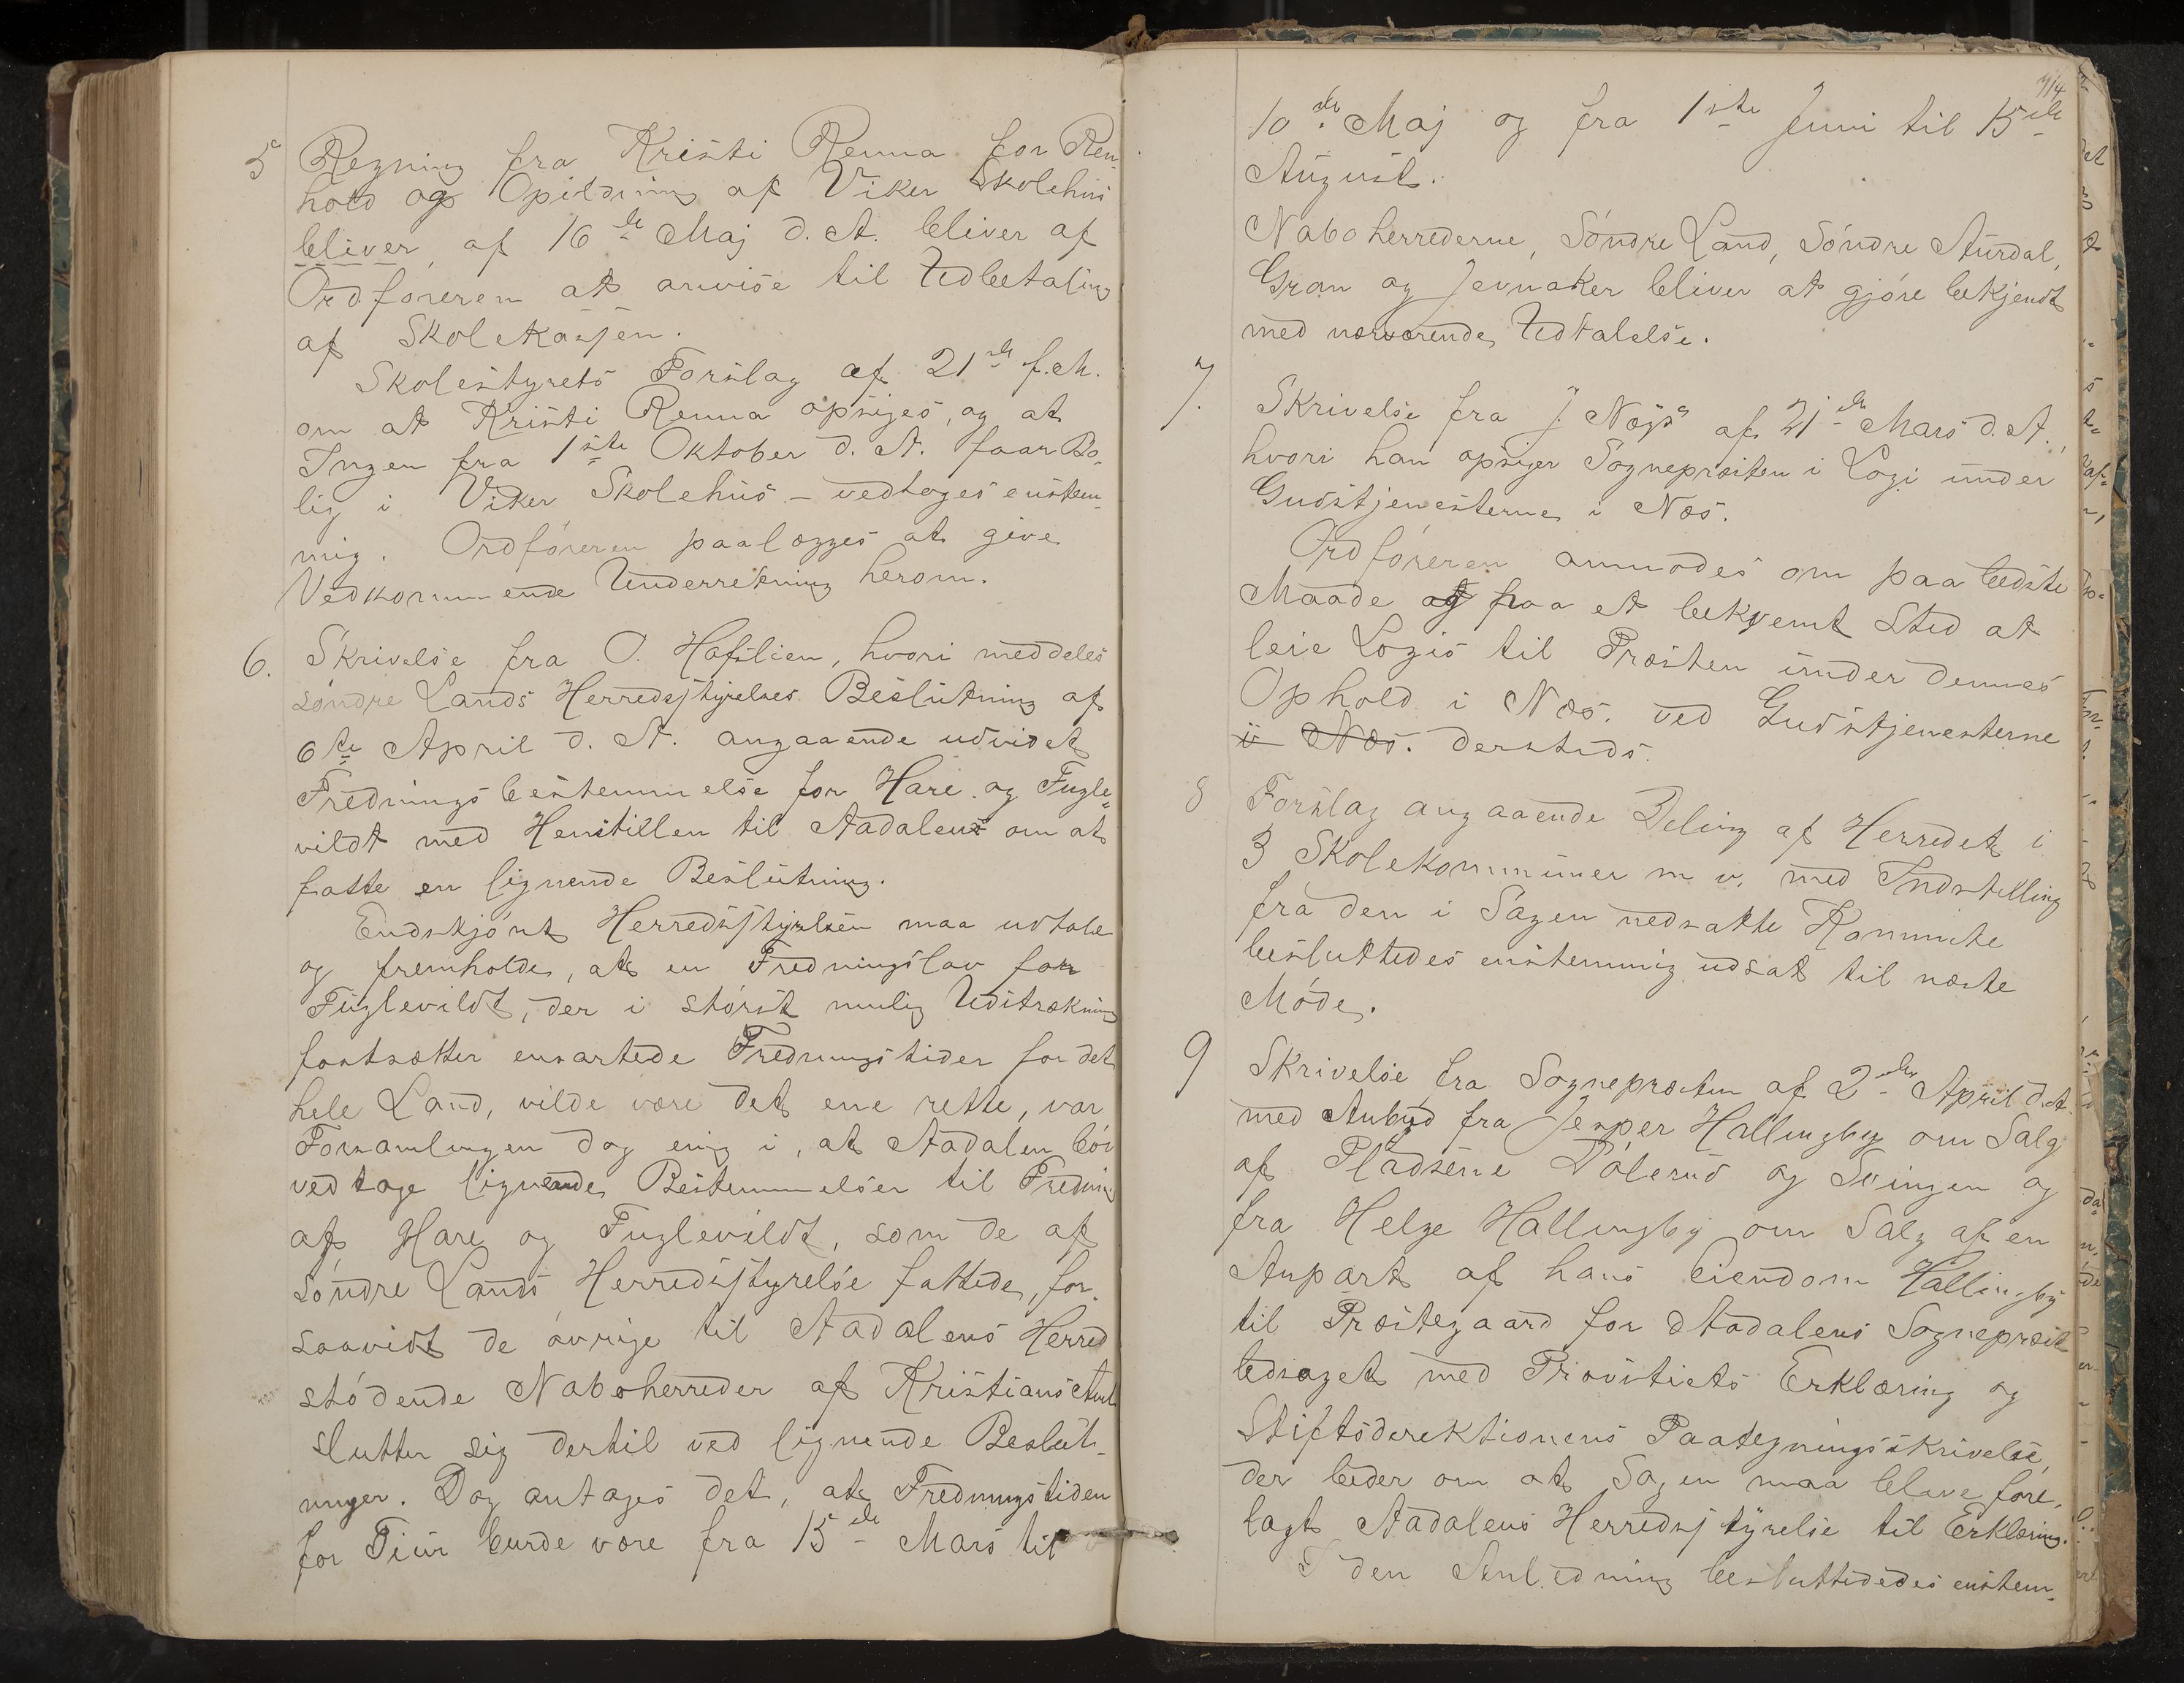 5 Regning fra Kristi Renna for Ren-
hold og Opildning af Viker Skolehus
bliver af 16de Maj d. A. bliver af
Ordføreren at anvise til Udbetaling
af Skolekassen.
Skolestyrets Forslag af 21de f. M.
om at Kristi Renna opsiges, og at
Ingen fra 1ste Oktober d. A. faar Bo-
lig i Viker Skolehus – vedtoges enstem-
mig. Ordføreren paalægges at give
Vedkommende Underretning herom.
6. Skrivelse fra O. Hafslien, hvori meddeles
søndre Lands Herredsstyrelses Beslutning af
6te April d. A. angaaende udvidet
Fredningsbestemmelse for Hare og Fugle-
vildt med Henstillen til Aadalens om at
fatte en lignende Beslutning.
Endskjønt Herredsstyrelsen maa udtale
og fremholde, at en Fredningslov for
Fuglevildt, der i størst mulig Udstrækning
fastsætter ensartede Fredningstider for det
hele Land, vilde være det ene rette, var
Forsamlingen dog enig i, at Aadalen bør
vedtage lignende Bestemmelser til Fredning
af Hare og Fuglevildt, som de af
søndre Lands Herredsstyrelse fattede, for-
saavidt de øvrige til Aadalens Herred
stødende Naboherreder af Kristians Amt
slutter sig dertil ved lignende Beslut-
ninger. Dog antages det, at Fredningstiden
for Tiur burde være fra 15de Mars til
714
10de Maj og fra 1ste Juni til 15de
August.
Naboherrederne, Søndre Land, Søndre Aurdal,
Gran og Jevnaker bliver at gjøre bekjendt
med nærværende Udtalelse.
7. Skrivelse fra J. Næss af 21de Mars d. A.,
hvori han opsiger Sognepresten i Logi under
Gudstjenesterne i Næs.
Ordføreren anmodes om paa bedste
Maade og paa et bekvemt Sted at
leie Logis til Præsten under dennes
Ophold i Næs. ved Gudstjenesterne
i Næs. dersteds.
8 Forslag angaaende Deling af Herredet i
3 Skolekommuner m. v. med Indstilling
fra den i Sagen nedsatte Kommite
besluttedes enstemmig udsat til næste
Møde.
9 Skrivelse fra Sognepræsten af 2den April d. A.
med Anbud fra Jesper Hallingby om Salg
af Pladsene Dølerud og Svingen og
fra Helge Hallingby om Salg af en
Anpart af hans Eiendom Hallingby
til Præstegaard for Aadalens Sognepræst
ledsaget med Provstiets Erklæring og
Stiftsderektionens Paategningsskrivelse,
der beder om at Sagen maa blive fore-
lagt Aadalens Herredsstyrelse til Erklæring.
I den Anledning besluttededes enstem-